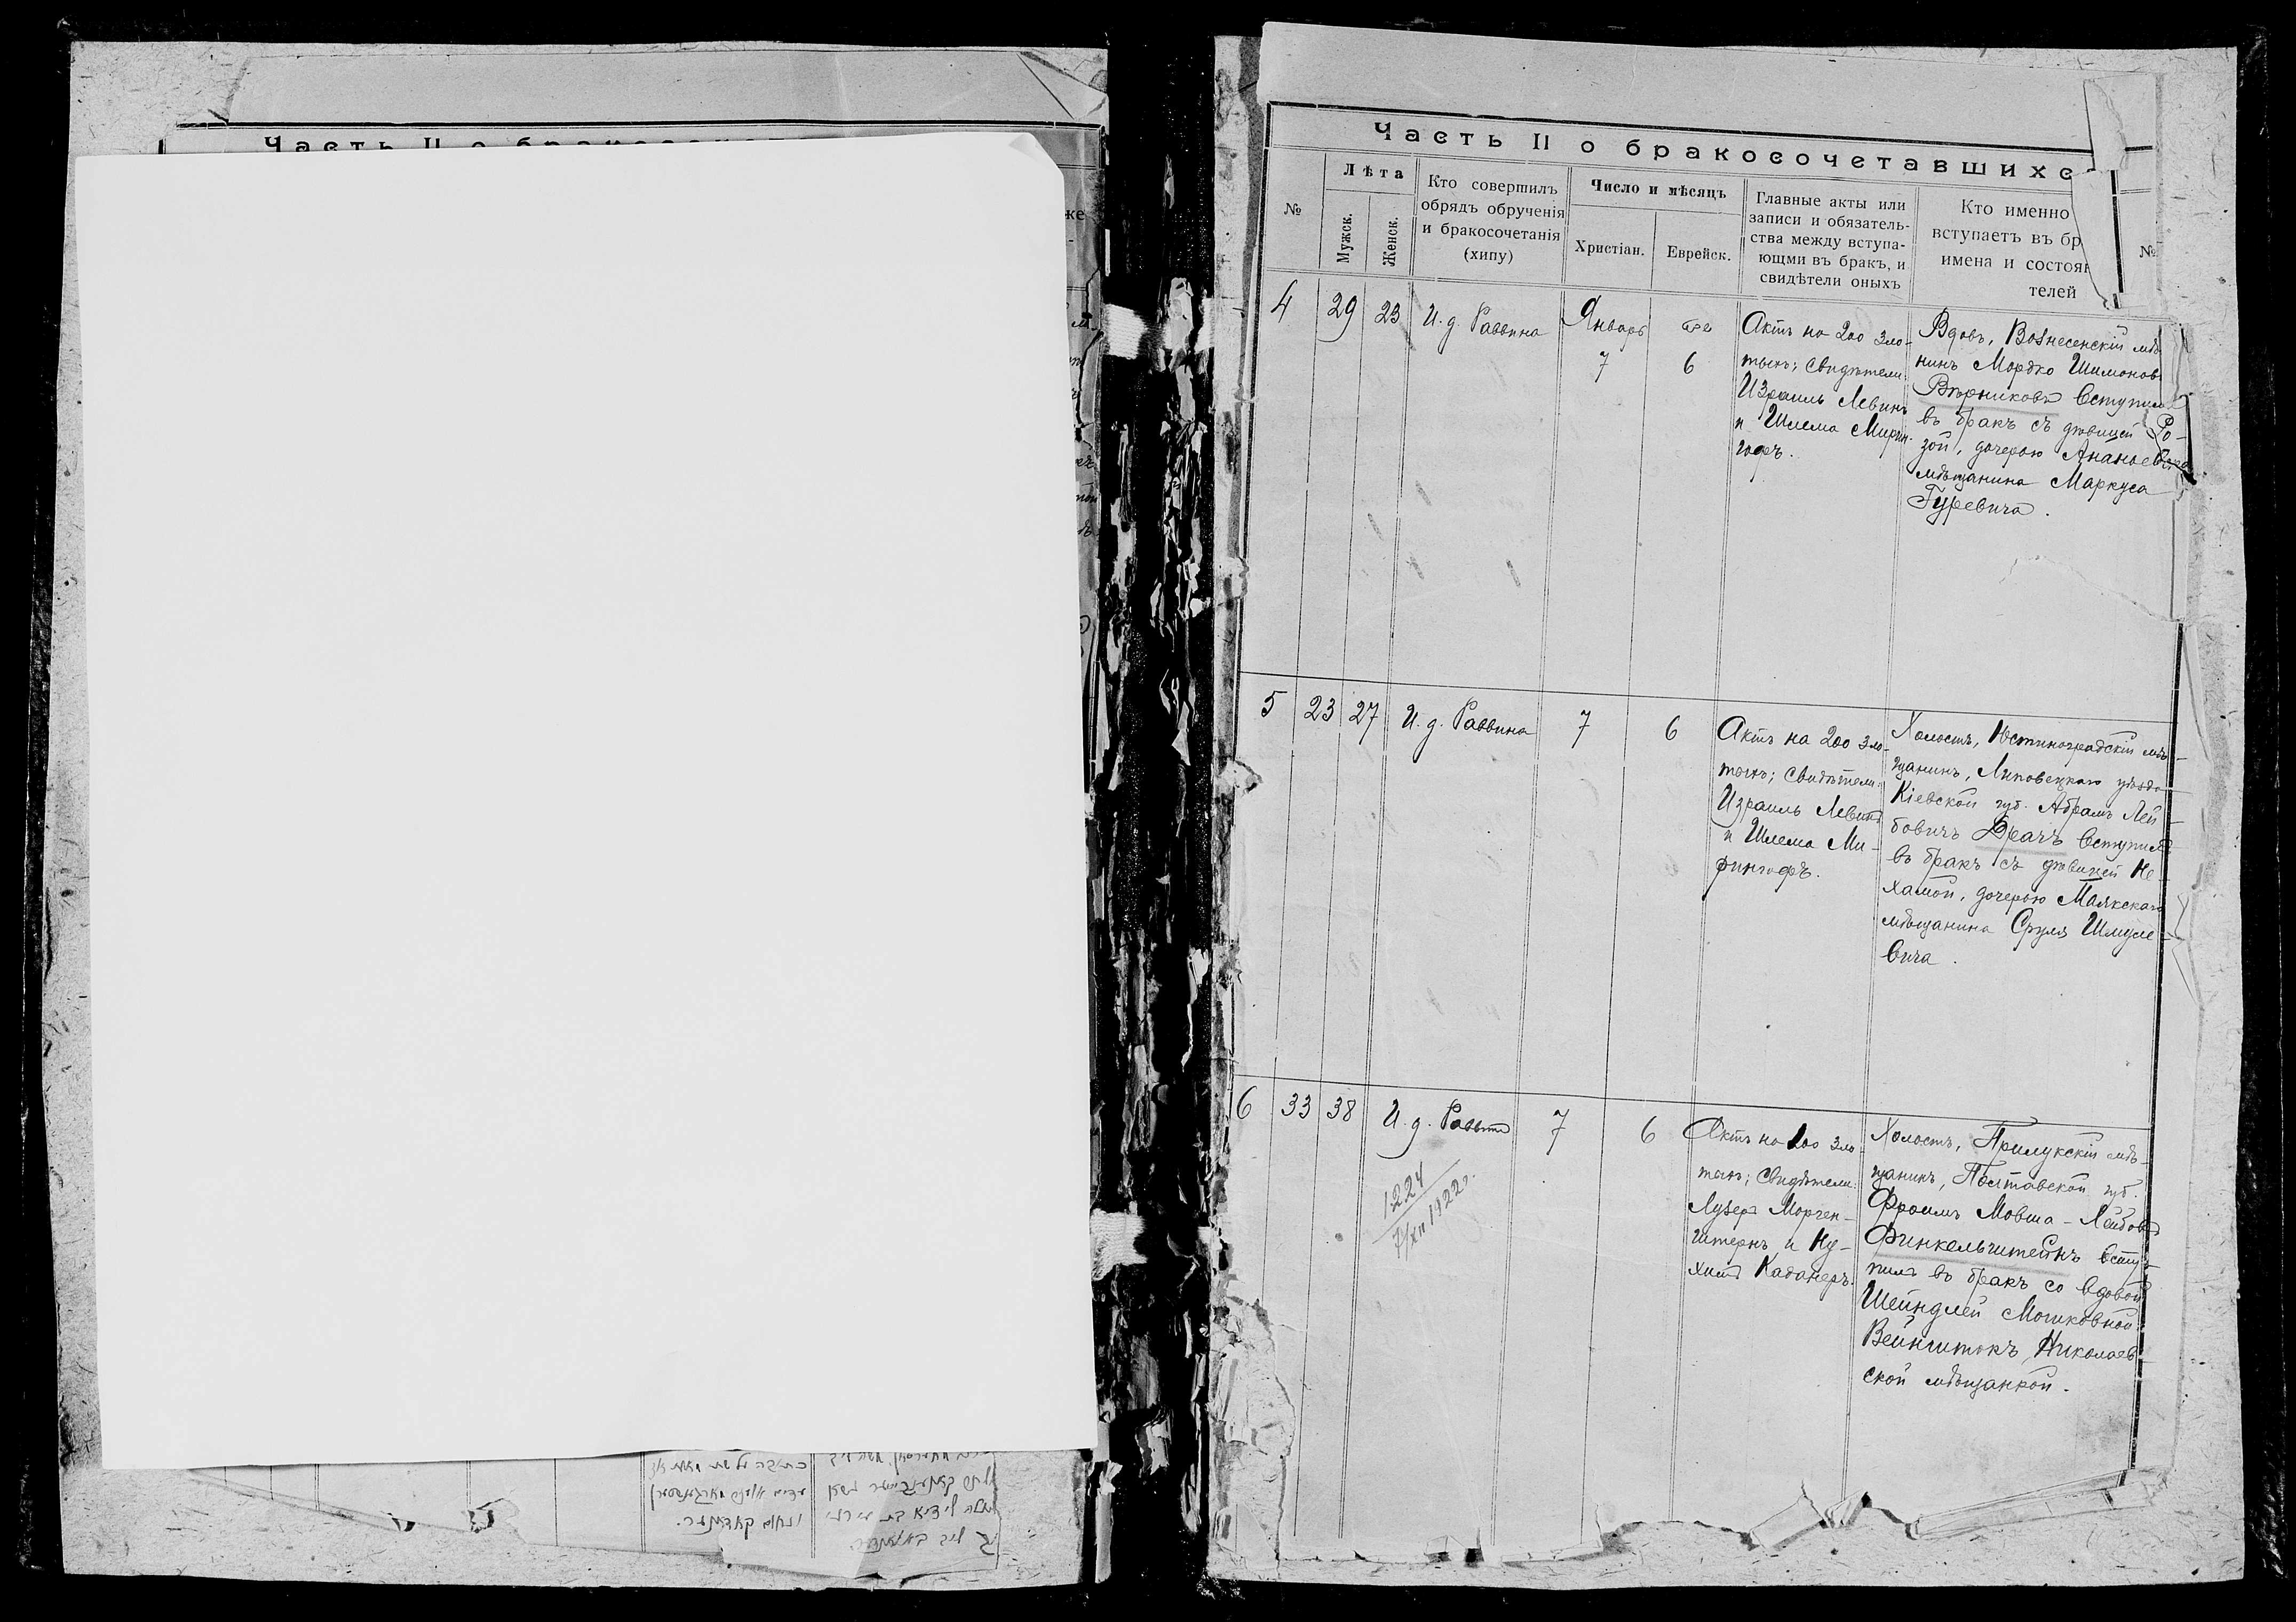 Часть II о
же
Часть II о бракосочетавшихс
№
Лѣта
Мужск.
Женск.
Кто совершилъ
обрядъ обрученія
и бракосочетанія
(хипу)
Число и мѣсяцъ
Христіан.
Еврейск.
Главные акты или
записи и обязатель-
ства между вступа-
ющми въ бракъ, и
свидѣтели оныхъ
Кто именно
вступаетъ въ бр
имена и состоян
телей
№
4
29
23
И. д. Раввина
Январь
7
6
Актъ на 200 зло-
тыхъ; Свидѣтели:
Израиль Левинъ
и Шлема Мирин-
гофъ.
Вдовъ, Вознесенскій мѣ
нинъ Мордко Шимонов
Вѣрниковъ вступилъ
въ бракъ съ дѣвицей Ро-
зой, дочерью Ананьевск
мѣщанина Маркуса
Гуревича.
5
23
27
И. д. Раввина
7
6
Актъ на 200 зло-
тыхъ; Свидѣтели:
Израиль Левинъ
и Шлема Ми-
рингофъ.
Холостъ, Юстиноградскій мѣ-
щанинъ, Липовецкаго уѣзда
Кіевской губ. Абрамъ Лей-
бовичъ Драчъ вступилъ
въ бракъ съ дѣвицей Не-
хамой, дочерью Маякскаго
мѣщанина Сруля Шмуле-
вича.
6
33
38
И. д. Раввина
1224
7/XII 1922 г.
7
6
Актъ на 200 зло-
тыхъ; Свидѣтели:
Лузеръ Морген-
штернъ и Ну-
химъ Каданеръ.
Холостъ, Прилукскій мѣ-
щанинъ, Полтавской губ.
Фроимъ Мовша-Лейбов
Финкельштейнъ всту-
пилъ въ бракъ со вдовой
Шейндлей Мошковной
Вейнштокъ, Николаев-
ской мѣщанкой.